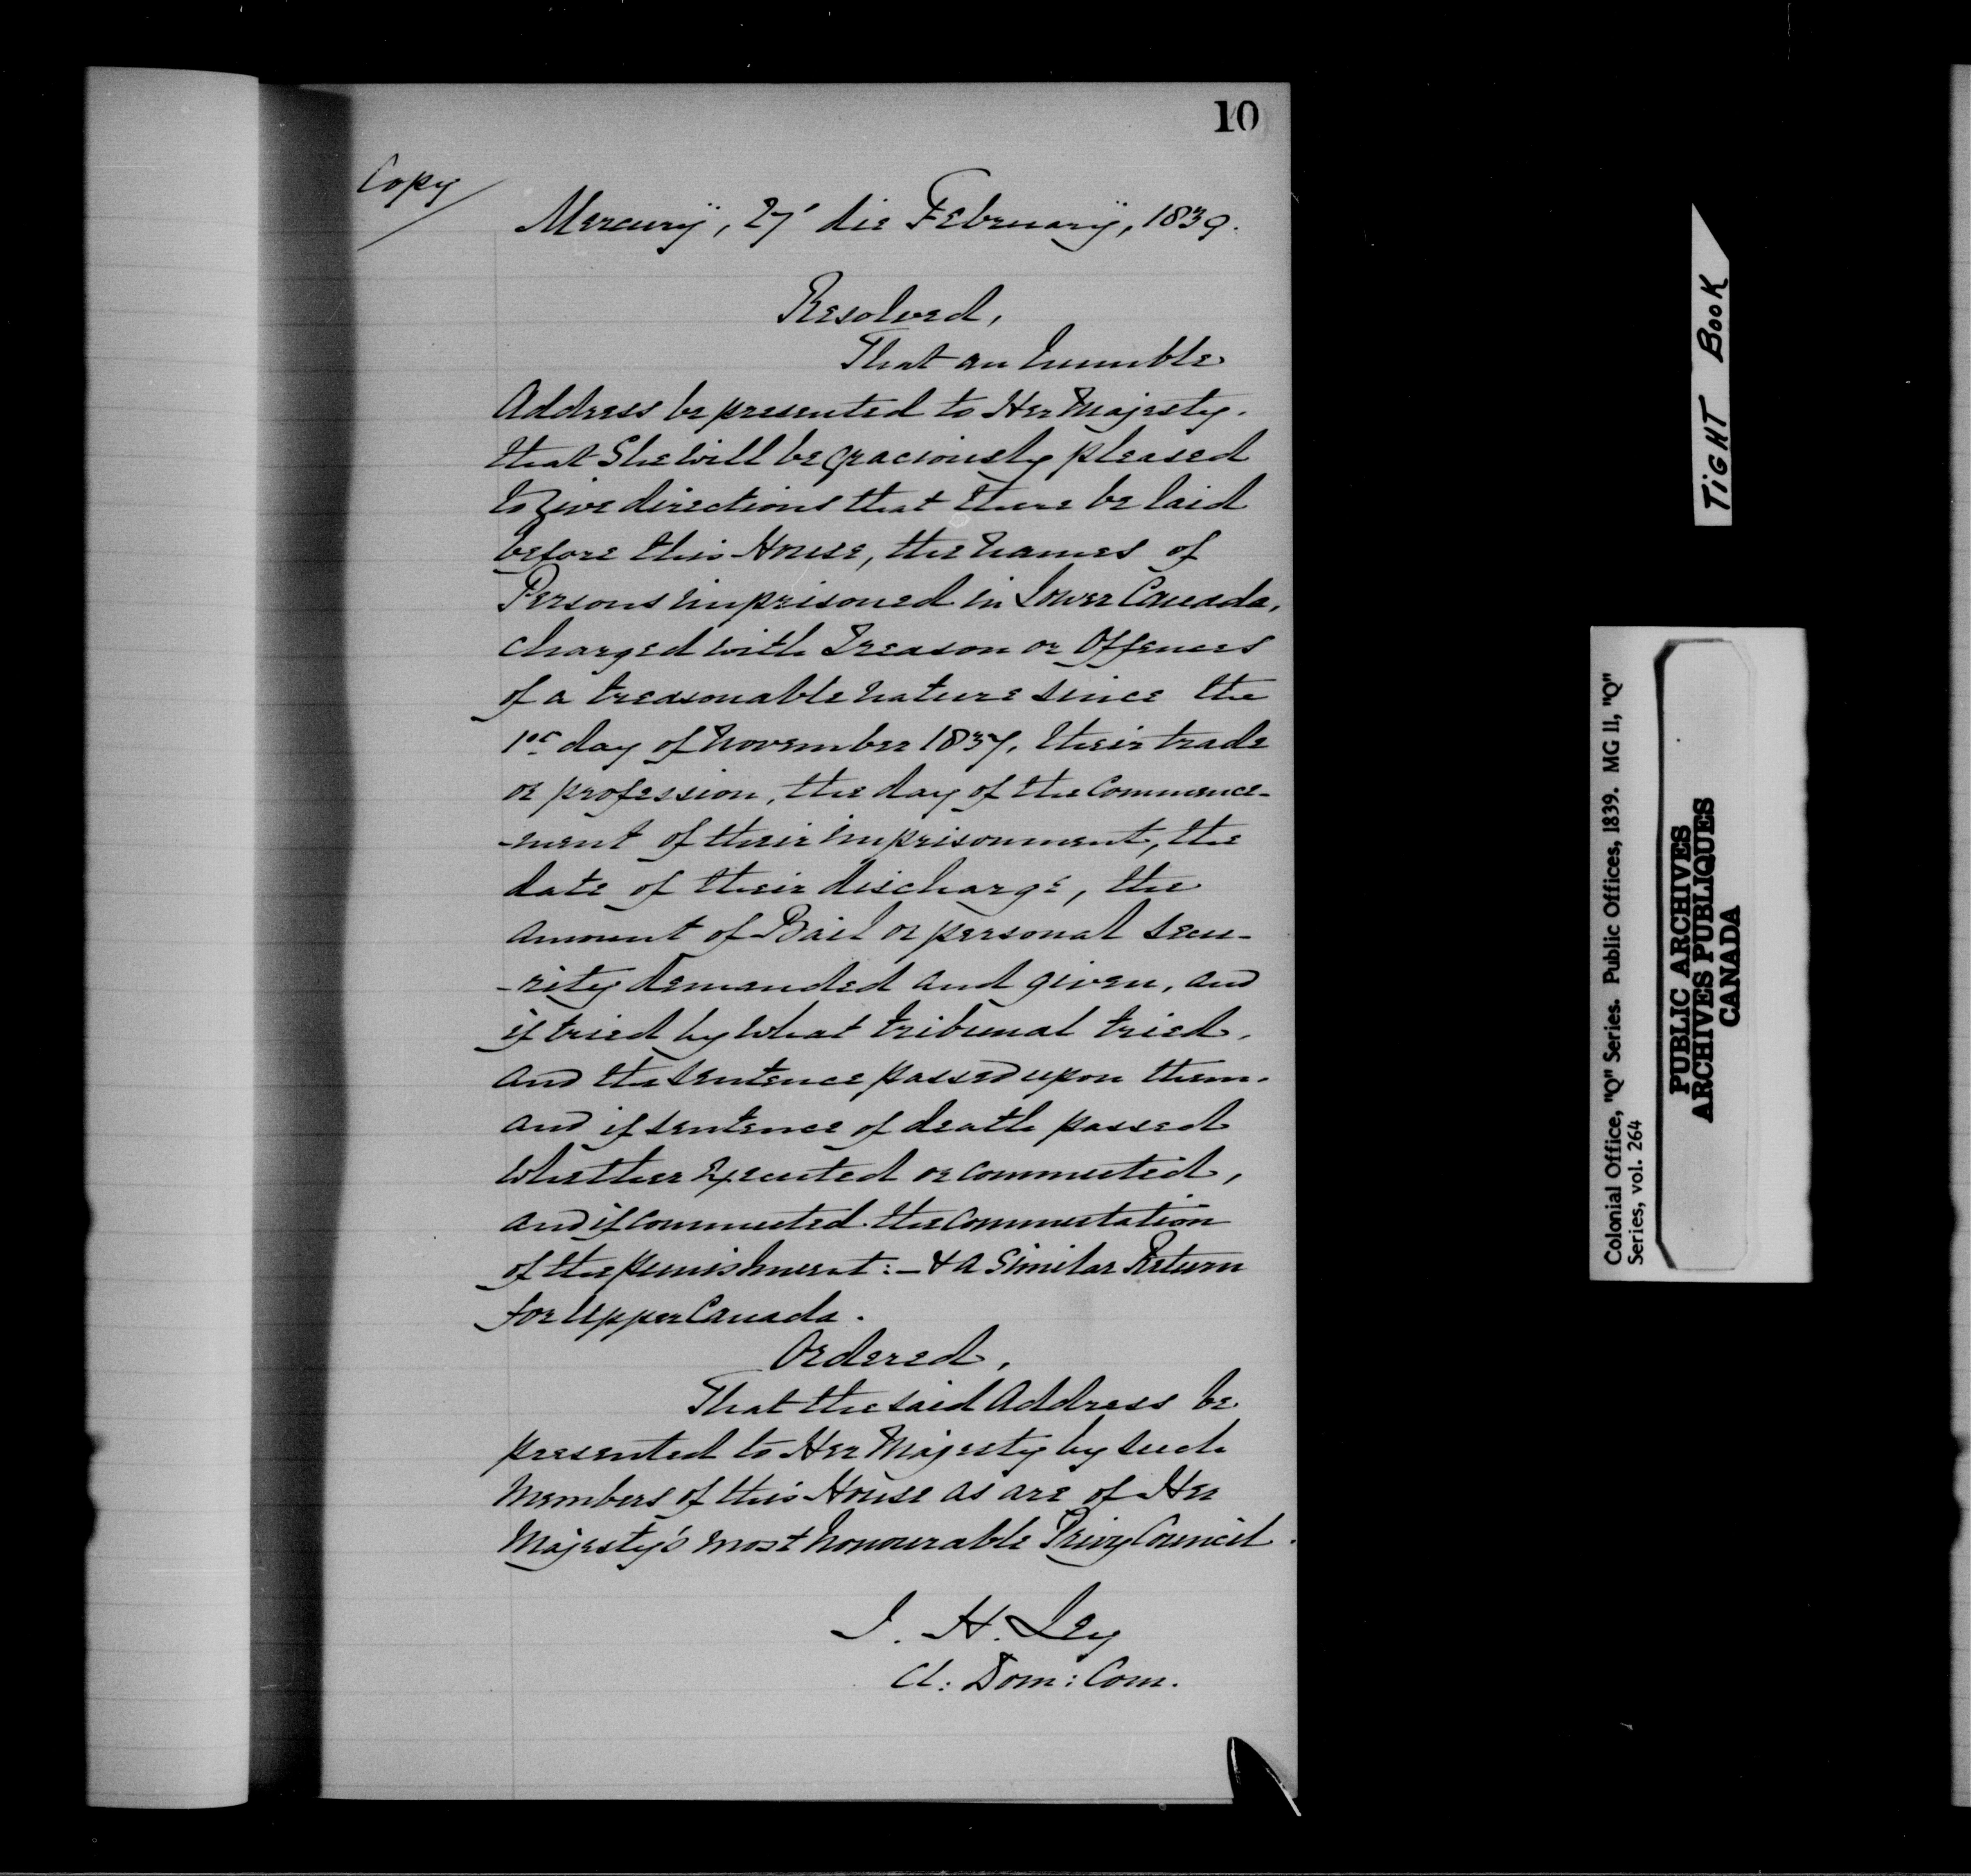 10
Copy
Mercurÿ, 27' die Februarÿ, 1839.
Resolved,
That an humble
Address be presented to Her Majesty.
that She will be graciously pleased
to give directions that there be laid
before this House, the names of
Persons imprisoned in Lower Canada,
charged with Treason or Offences
of a treasonable nature since the
1st day of November 1837, their trade
or profession, the day of the Commence-
-ment of their imprisonment, the
date of their discharge, the
amount of Bail or personal secu-
-rity demanded and given, and
if tried by what tribunal tried,
and the sentence passed upon them.
and if sentence of death passed
whether executed or commuted,
and if commuted the commutation
of the punishment:- & a Similar Return
for Upper Canada.
Ordered,
That the said Address be
presented to Her Majesty by such
Members of this House as are of Her
Majesty's most honourable Privy Council.
J. H. Ley
Cl: Dom: Com.
TIGHT BOOK
Colonial Office, "Q" Series. Public Offices, 1839. MG 11, "Q"
Series, vol. 264
PUBLIC ARCHIVES
ARCHIVES PUBLIQUES
CANADA